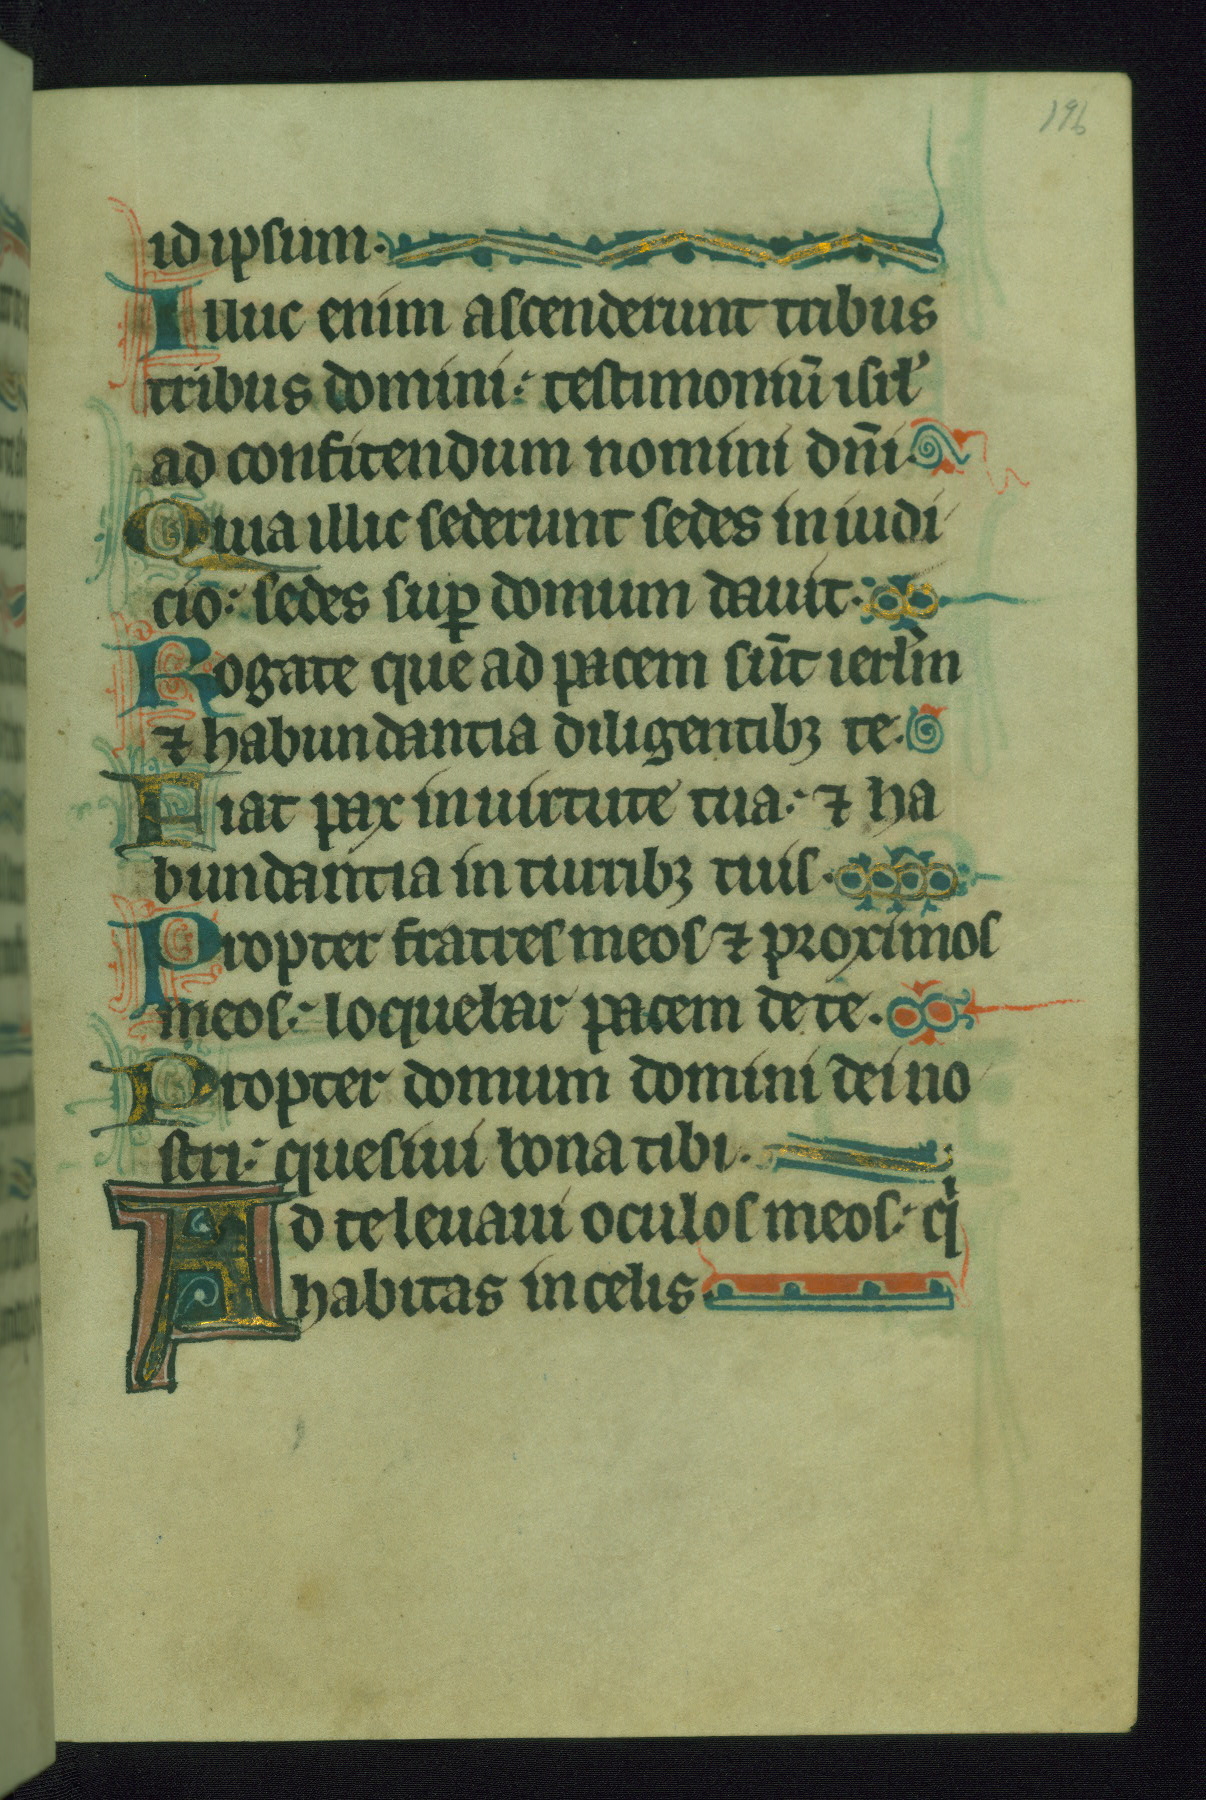 196
id ipsum.
Illuc enim ascenderunt tribus
tribus domini: testimoniū isrł’
ad confitendum nomini dn̄i.
Quia illic sederunt sedes in iudi
cio: sedes suꝑ domum dauit.
Rogate que ad pacem sūt ierlm̄
⁊ habundantia diligentibꝫ te.
Fiat pax in uirtute tua: ⁊ ha
bundantia in turribꝫ tuis.
Propter fratres meos ⁊ proximos
meos: loquebar pacem de te.
Propter domum domini dei no
stri: quesiui bona tibi.
Ad te leuaui oculos meos: qi
habitas in celis